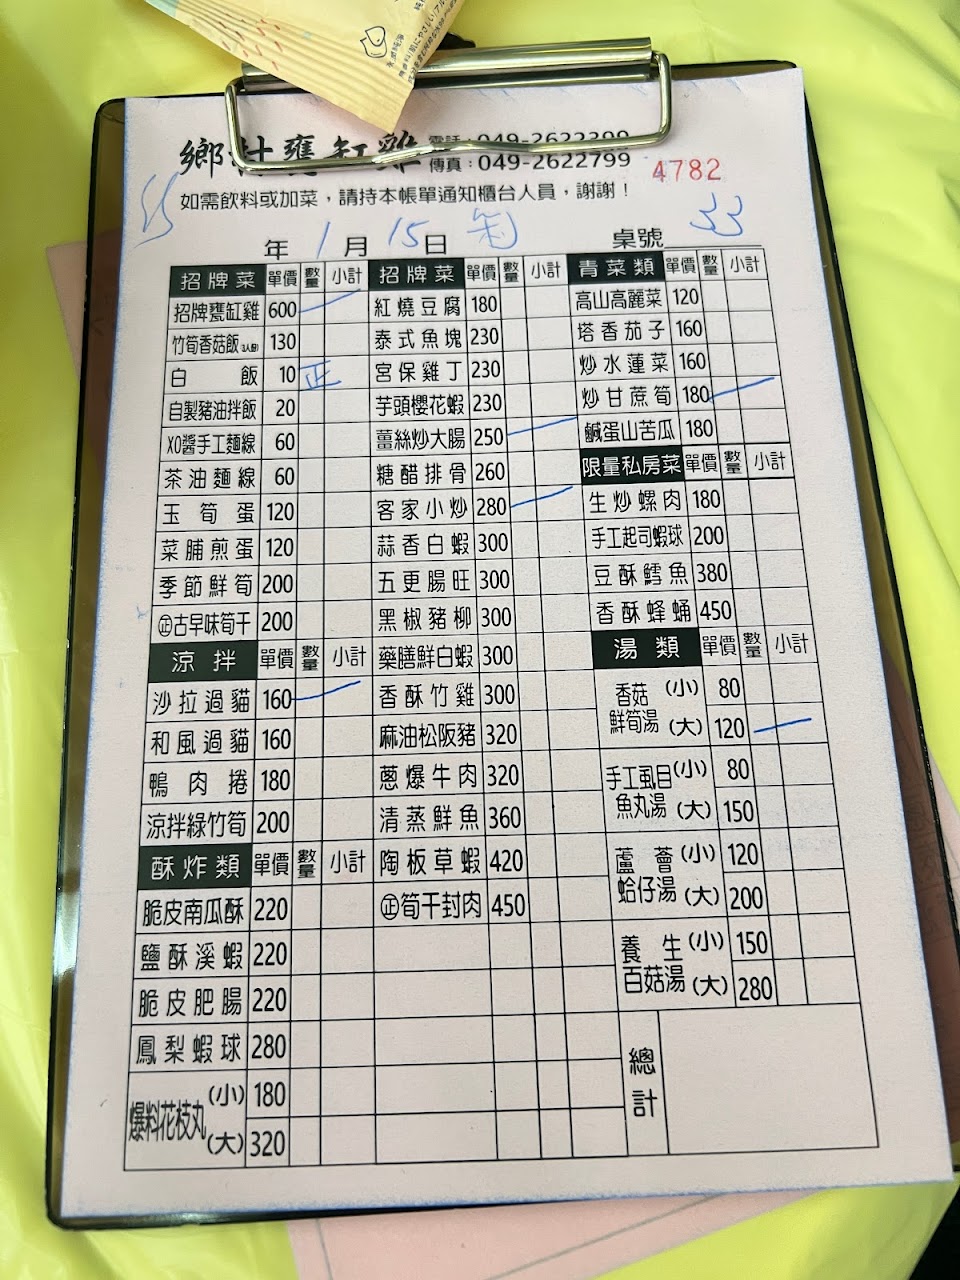 鄉村甕缸雞
電話：049-2622399
傳真：049-2622799
4782
如需飲料或加菜，請持本帳單通知櫃台人員，謝謝！
年 1 月 15 日
桌號 33
招牌菜 單價 數量 小計
招牌甕缸雞 600
竹筍香菇飯 130
白飯 10 正
自製豬油拌飯 20
XO醬手工麵線 60
茶油麵線 60
玉筍蛋 120
菜脯煎蛋 120
季節鮮筍 200
㊣古早味筍干 200
涼拌 單價 數量 小計
沙拉過貓 160
和風過貓 160
鴨肉捲 180
涼拌綠竹筍 200
酥炸類 單價 數量 小計
脆皮南瓜酥 220
鹽酥溪蝦 220
脆皮肥腸 220
鳳梨蝦球 280
爆料花枝丸 (小) 180
(大) 320
招牌菜 單價 數量 小計
紅燒豆腐 180
泰式魚塊 230
宮保雞丁 230
芋頭櫻花蝦 230
薑絲炒大腸 250
糖醋排骨 260
客家小炒 280
蒜香白蝦 300
五更腸旺 300
黑椒豬柳 300
藥膳鮮白蝦 300
香酥竹雞 300
麻油松阪豬 320
蔥爆牛肉 320
清蒸鮮魚 360
陶板草蝦 420
㊣筍干封肉 450
青菜類 單價 數量 小計
高山高麗菜 120
塔香茄子 160
炒水蓮菜 160
炒甘蔗筍 180
鹹蛋山苦瓜 180
限量私房菜 單價 數量 小計
生炒螺肉 180
手工起司蝦球 200
豆酥鱈魚 380
香酥蜂蛹 450
湯類 單價 數量 小計
香菇鮮筍湯 (小) 80
(大) 120
手工虱目魚丸湯 (小) 80
(大) 150
蘆薈蛤仔湯 (小) 120
(大) 200
養生百菇湯 (小) 150
(大) 280
總計